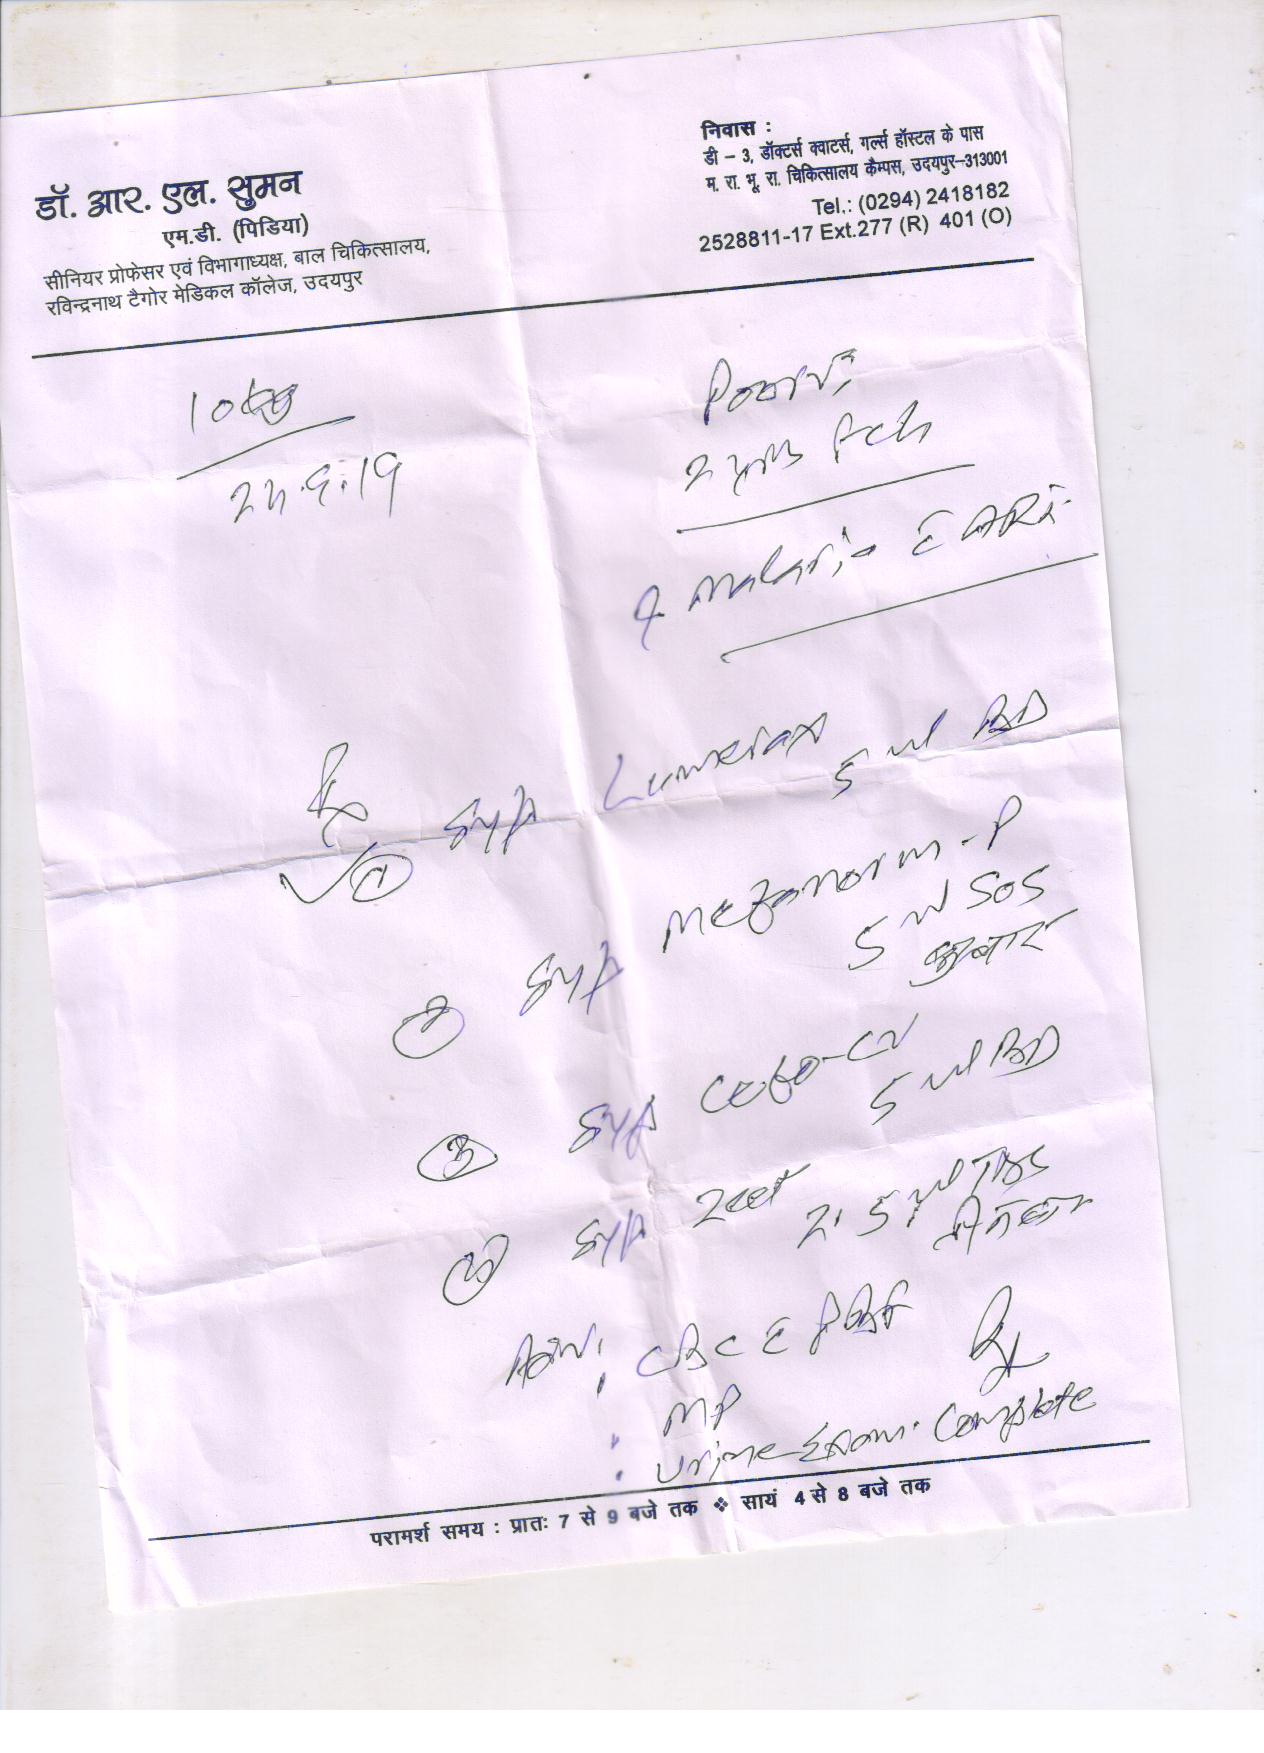 डॉ. आर. एल. सुमन
एम.डी. (पिडिया)
सीनियर प्रोफेसर एवं विभागाध्यक्ष, बाल चिकित्सालय,
रविन्द्रनाथ टैगोर मेडिकल कॉलेज, उदयपुर
निवास :
डी – 3, डॉक्टर्स क्वाटर्स, गर्ल्स हॉस्टल के पास
म. रा. भू. रा. चिकित्सालय कैम्पस, उदयपुर–313001
Tel.: (0294) 2418182
2528811-17 Ext.277 (R) 401 (O)
10 kg
.9.19
Poorvi
2 yrs Fch
Malaria
Rx
① Syp
5 ml BD
② Syp Mefanorm-P
5 ml SOS
बुखार
③ Syp Cefo-CV
5 ml BD
④ Syp Zeet
2.5 ml TDS
Adv: CBC PBF
: MP
: Urine Exam. Complete
परामर्श समय : प्रातः 7 से 9 बजे तक ❖ सायं 4 से 8 बजे तक